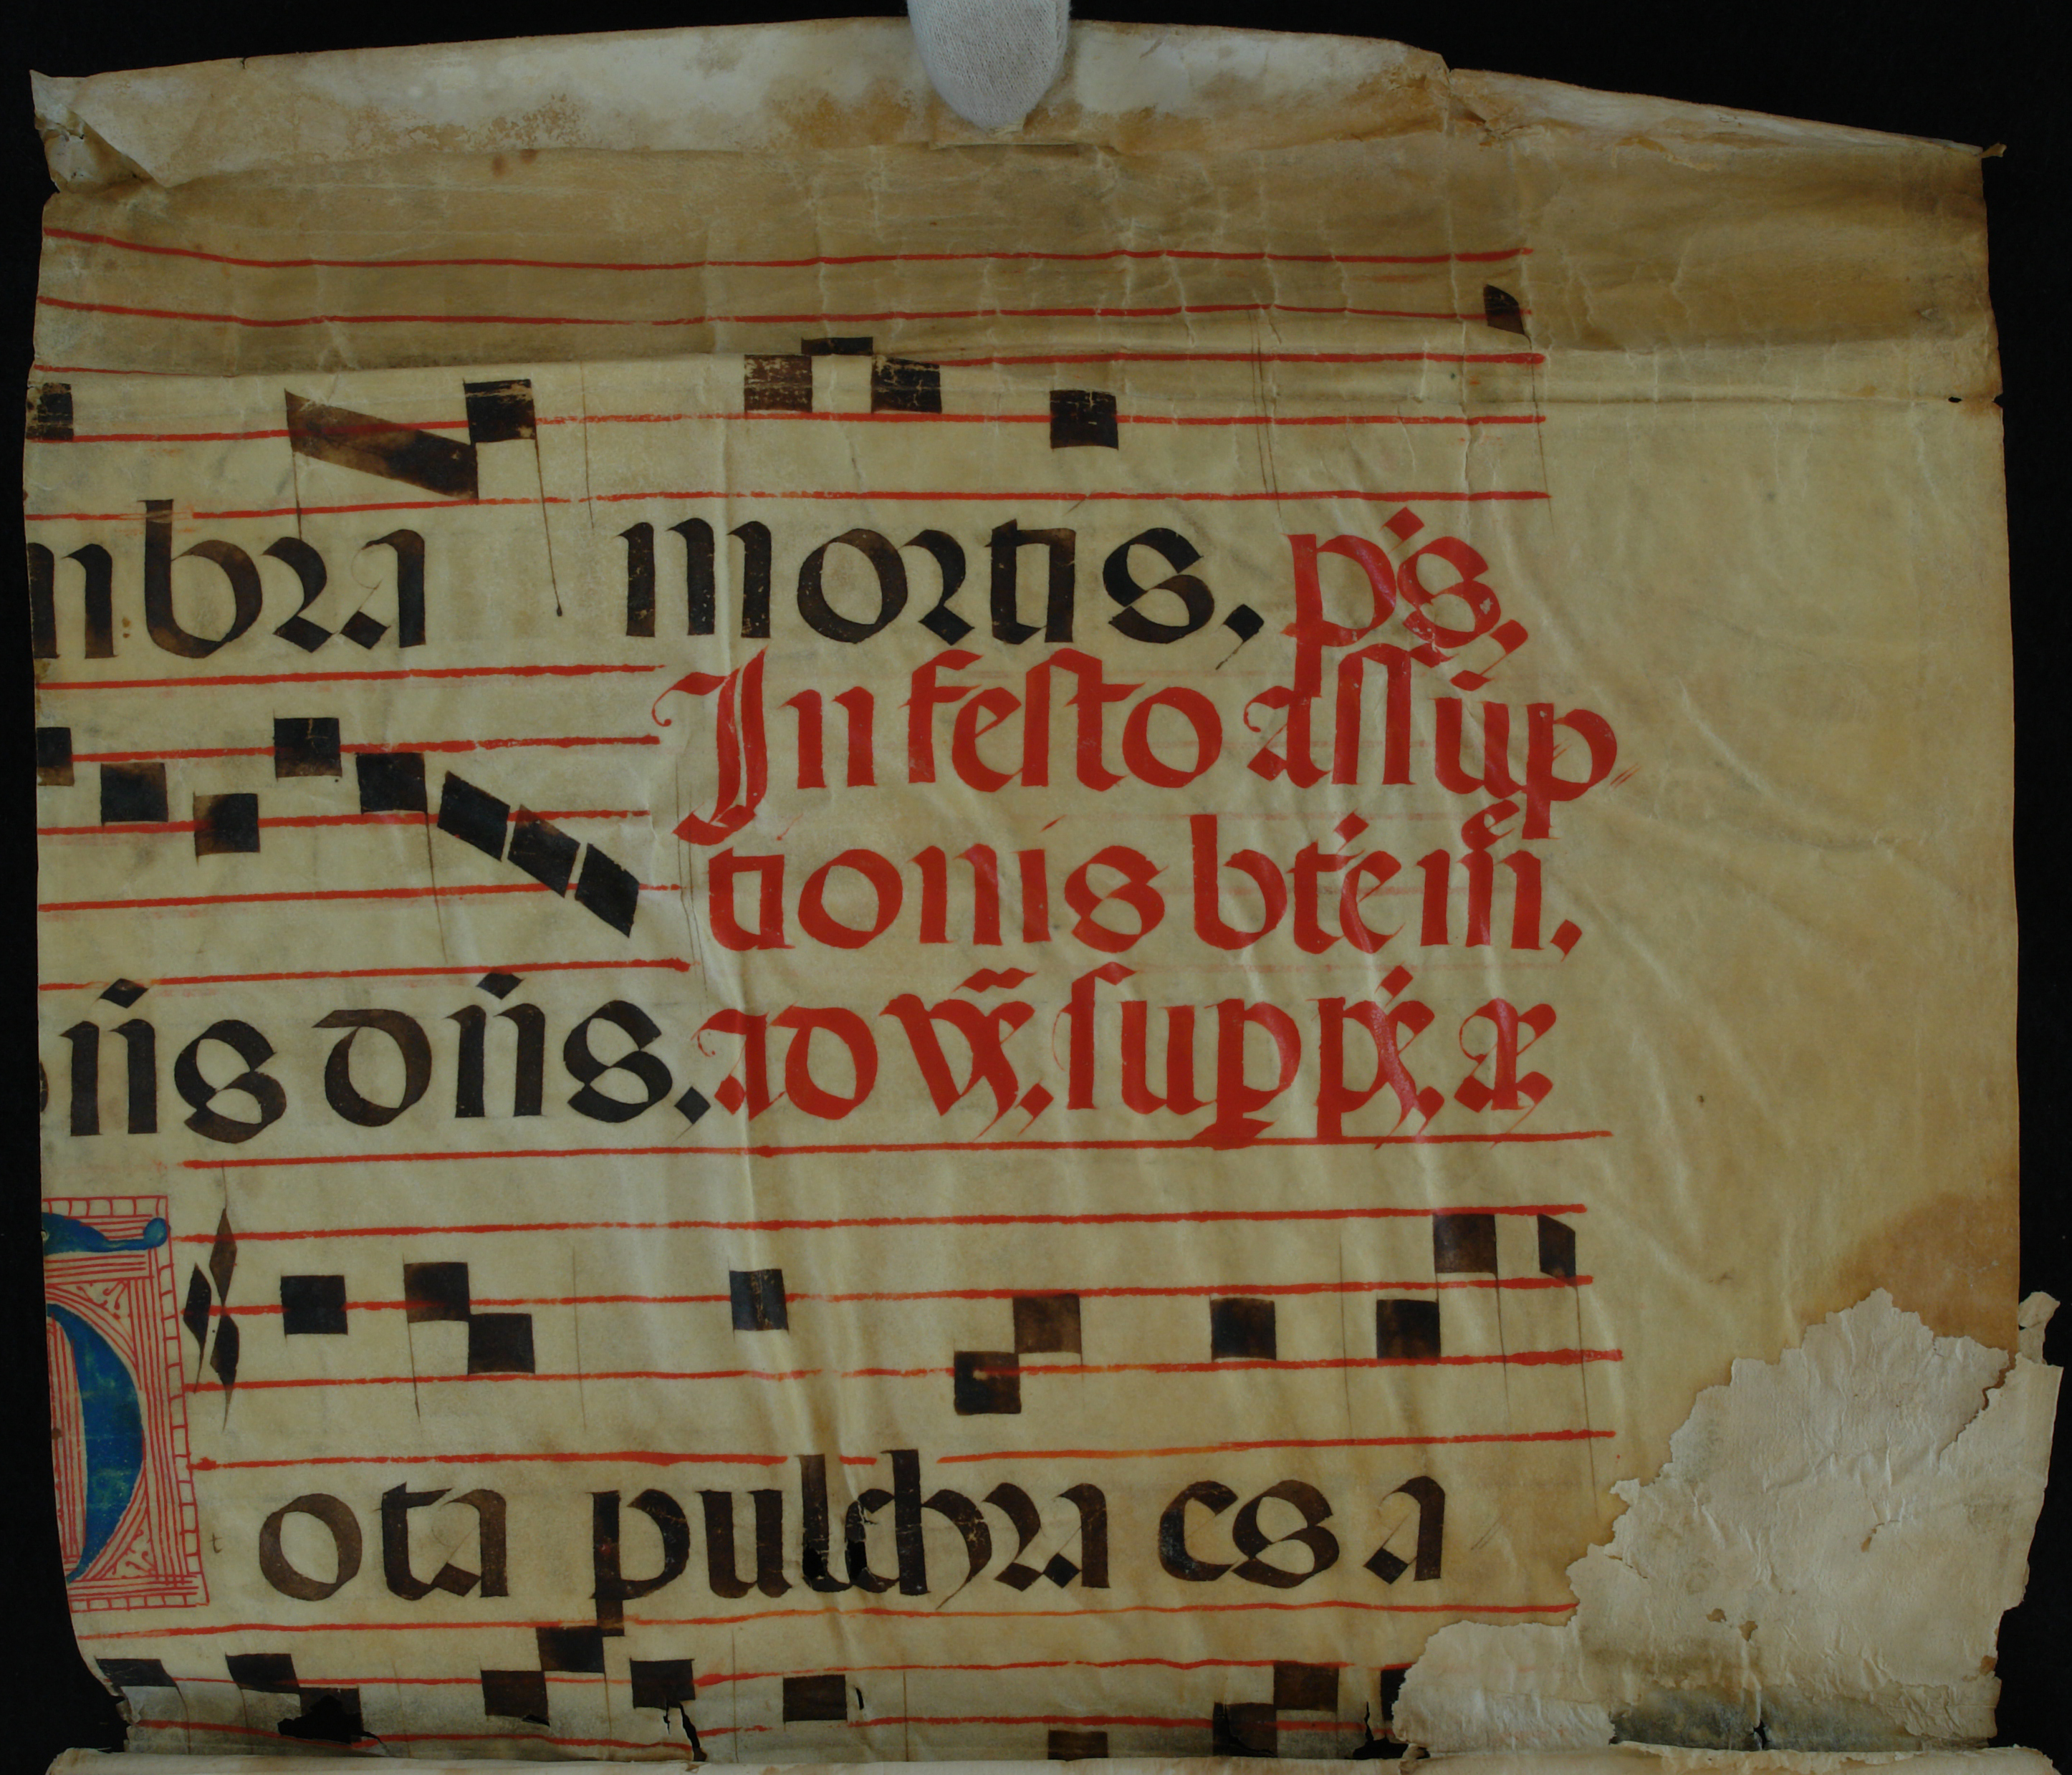 mbra mortis, p̄s,
In festo assūp
tionis bt̄e m̄,
n̄is dn̄is. ad vs̄. supp̄s, a
Tota pulchra es a